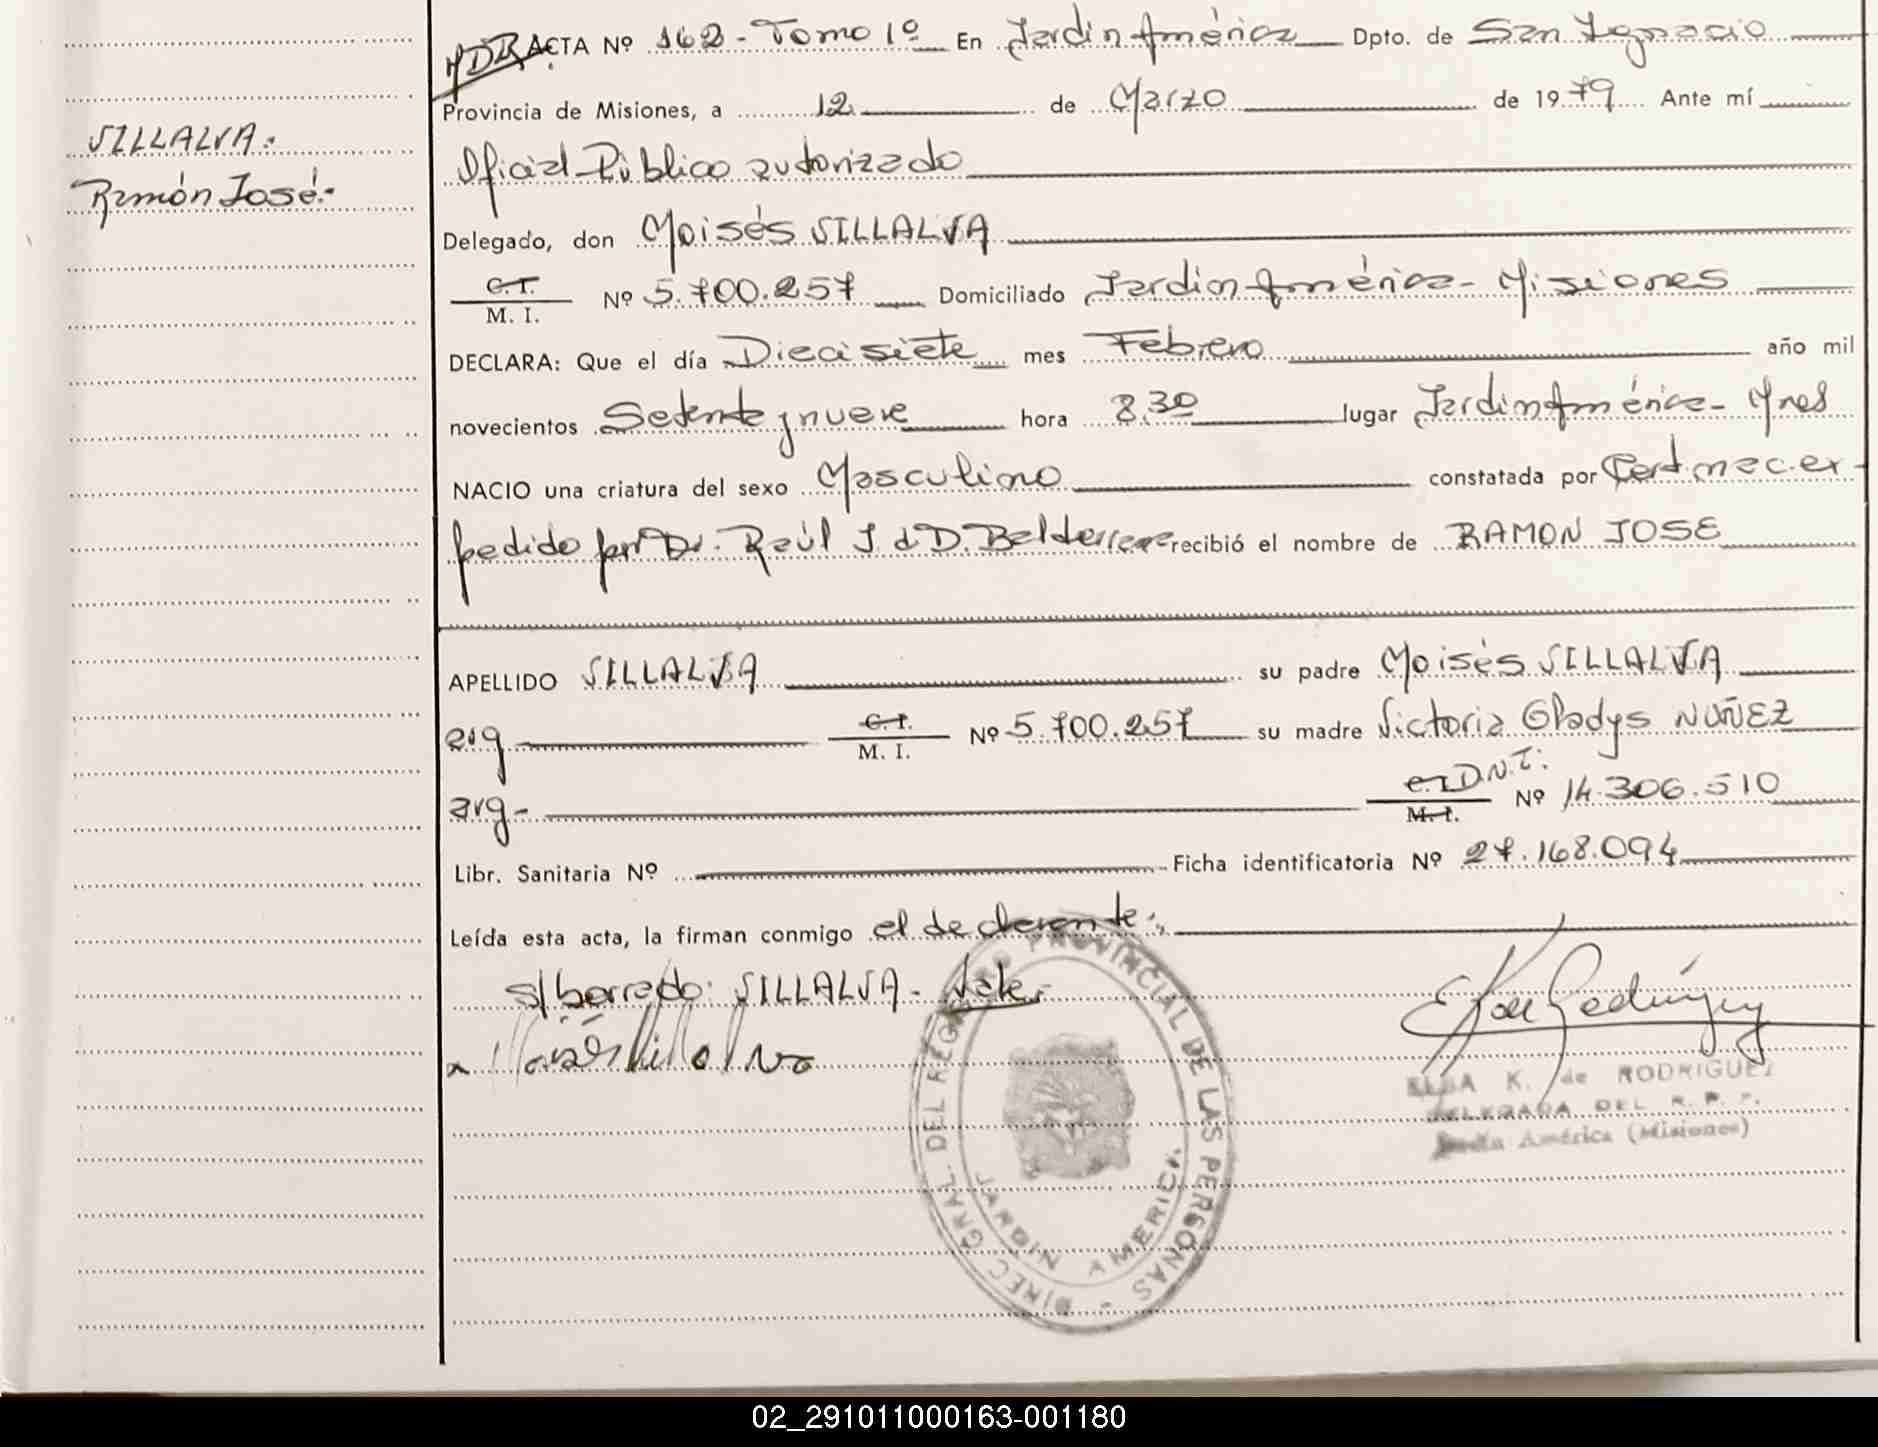 SILLALVA:
Ramón José:-
ACTA Nº 162 - Tomo 1º En Jardín América Dpto. de San Ignacio
Provincia de Misiones, a 12 de Marzo de 1979 Ante mí
Oficial Público autorizado
Delegado, don Moisés SILLALVA
C.I. M. I. Nº 5.700.257 Domiciliado Jardín América - Misiones
DECLARA: Que el día Diecisiete mes Febrero año mil
novecientos Setenta y nueve hora 8.30 lugar Jardín América - Mnes
NACIO una criatura del sexo Masculino constatada por Cert. mec. ex-
pedido por Dr. Raúl J. d D. Belderrere recibió el nombre de RAMON JOSE
APELLIDO SILLALVA su padre Moisés SILLALVA
arg C.I. M. I. Nº 5.700.257 su madre Victoria Gladys NUÑEZ
arg- C.I. D.N.I. M.I. Nº 14.306.510
Libr. Sanitaria Nº Ficha identificatoria Nº 27.168.094
Leída esta acta, la firman conmigo el declarante:,
s/borrado: SILLALVA - Vale:
Moisés Sillalva
DIREC. GRAL. DEL REGISTRO PROVINCIAL DE LAS PERSONAS -
JARDIN AMERICA
ELBA K. de RODRIGUEZ
DELEGADA DEL R. P. P.
Jardín América (Misiones)
02_291011000163-001180